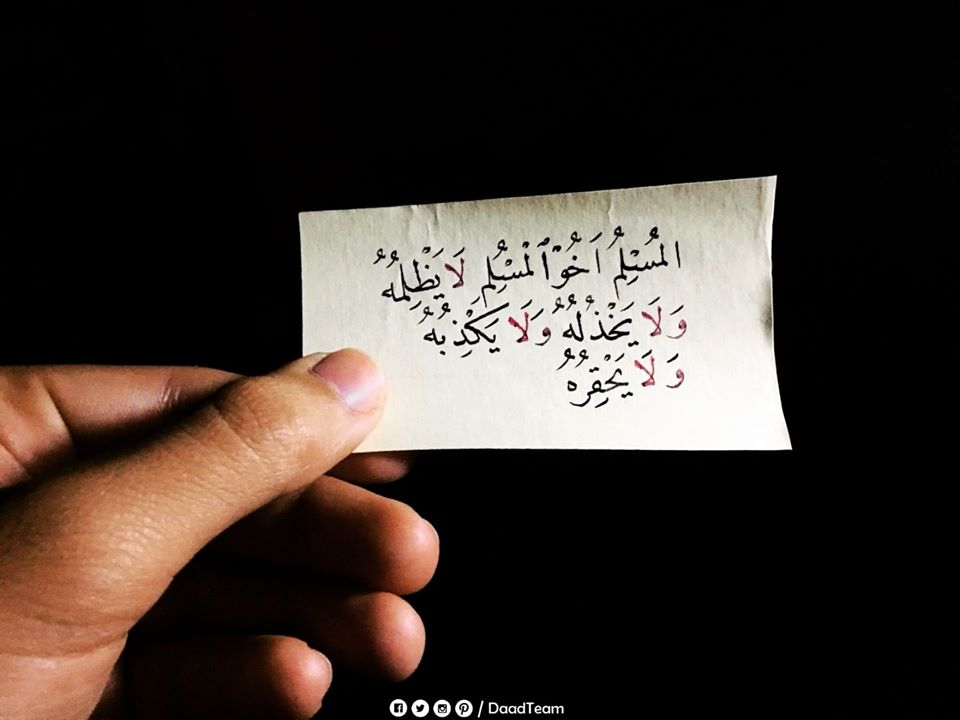 المُسْلِمُ اَخُوْ ٱلْمُسْلِمِ لَا يَظْلِمُهُ
وَلَا يَخْذُلُهُ وَلَا يَكْذِبُهُ
وَلَا يَحْقِرُهُ
/ DaadTeam